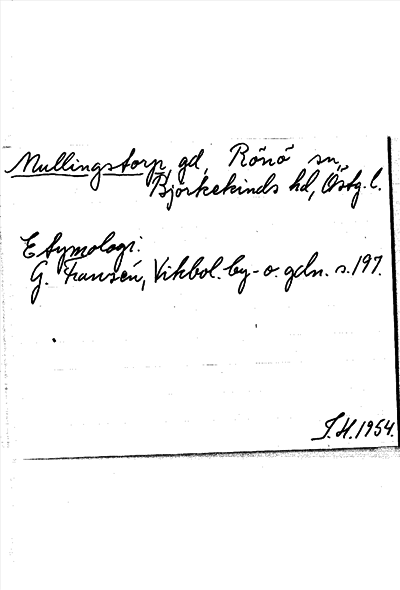 Mullingstorp, gd, Rönö sn,
Björkekinds hd, Östg. l.
Etymologi:
G. Franzén, Vikbol. by- o. gdsn. s. 197.
J. H. 1954.